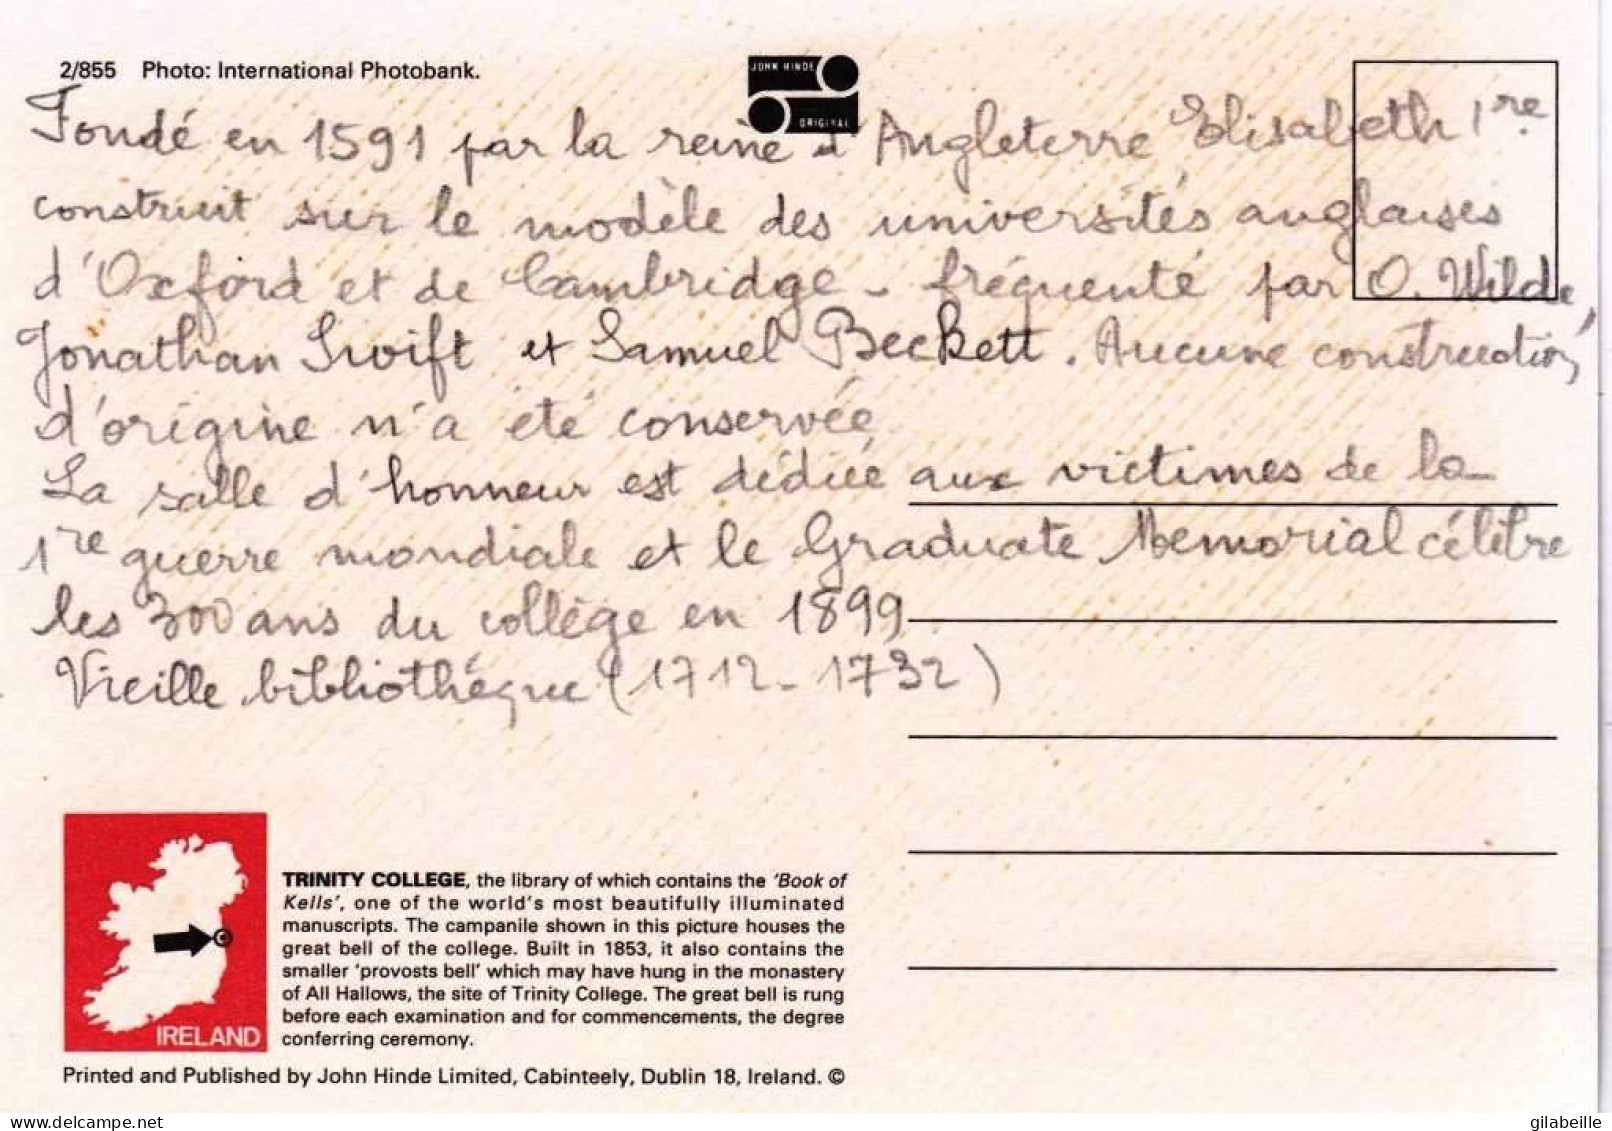 2/855 Photo: International Photobank.
JOHN HINDE
ORIGINAL
Fondé en 1591 par la reine d'Angleterre Elisabeth 1re
construit sur le modèle des universités anglaises
d'Oxford et de Cambridge - fréquenté par O. Wilde,
Jonathan Swift et Samuel Beckett. Aucune construction
d'origine n'a été conservée
La salle d'honneur est dédiée aux victimes de la
1re guerre mondiale et le Graduate Memorial célèbre
les 300 ans du collège en 1899
Vieille bibliothéque (1712-1732)
TRINITY COLLEGE, the library of which contains the 'Book of
Kells', one of the world's most beautifully illuminated
manuscripts. The campanile shown in this picture houses the
great bell of the college. Built in 1853, it also contains the
smaller 'provosts bell' which may have hung in the monastery
of All Hallows, the site of Trinity College. The great bell is rung
before each examination and for commencements, the degree
conferring ceremony.
IRELAND
Printed and Published by John Hinde Limited, Cabinteely, Dublin 18, Ireland. ©
delcampe.net
gilabeille